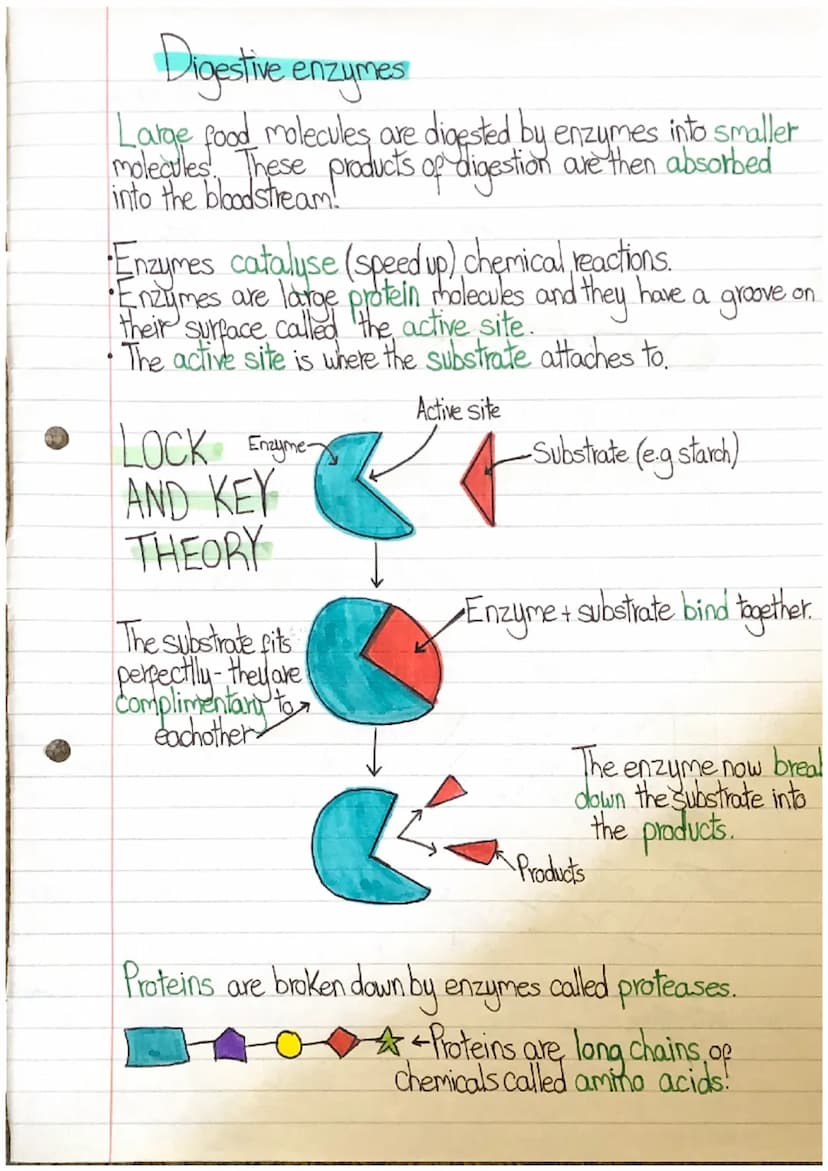 Digestive enzymes
Large food molecules are digested by enzymes into smaller
molecules! These products of digestion are then absorbed
into the bloodstream!
•Enzymes catalyse (speed up) chemical reactions.
•Enzymes are large protein molecules and they have a groove on
their surface called the active site.
• The active site is where the substrate attaches to.
Active site
LOCK
AND KEY
THEORY
Enzyme
Substrate (e.g starch)
Enzyme + substrate bind together.
The substrate fits
perfectlly - they are
complimentary to
eachother
The enzyme now break
down the substrate into
the products.
Products
Proteins are broken down by enzymes called proteases.
←Proteins are long chains of
chemicals called amino acids!